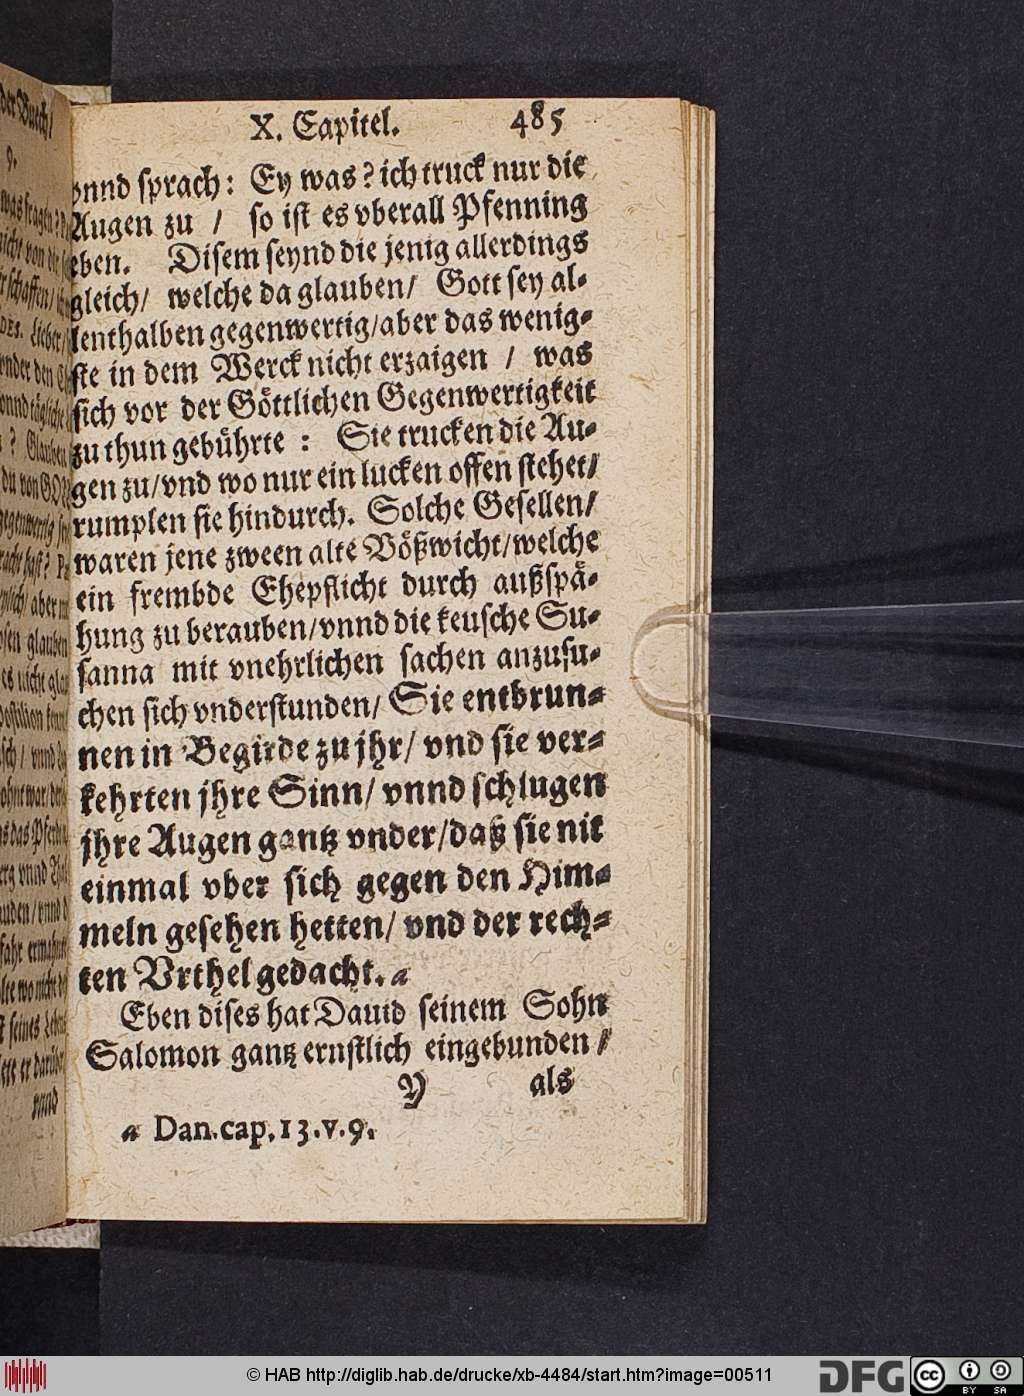 X. Capitel. 485
vnnd sprach: Ey was? ich truck nur die
Augen zu / so ist es vberall Pfenning
eben. Disem seynd die jenig allerdings
gleich/ welche da glauben/ Gott sey al-
lenthalben gegenwertig/aber das wenig-
ste in dem Werck nicht erzaigen / was
sich vor der Göttlichen Gegenwertigkeit
zu thun gebührte : Sie trucken die Au-
gen zu/vnd wo nur ein lucken offen stehet/
rumplen sie hindurch. Solche Gesellen/
waren jene zween alte Bößwicht/welche
ein frembde Ehepflicht durch außspä-
hung zu berauben/vnnd die keusche Su-
sanna mit vnehrlichen sachen anzusu-
chen sich vnderstunden/ Sie entbrun-
nen in Begirde zu jhr/ vnd sie ver-
kehrten jhre Sinn/ vnnd schlugen
jhre Augen gantz vnder/daß sie nit
einmal vber sich gegen den Him-
meln gesehen hetten/ vnd der rech-
ten Vrthel gedacht. a
Eben dises hat Dauid seinem Sohn
Salomon gantz ernstlich eingebunden /
Y als
a Dan.cap.13.v.9.
© HAB http://diglib.hab.de/drucke/xb-4484/start.htm?image=00511
DFG
cc BY SA